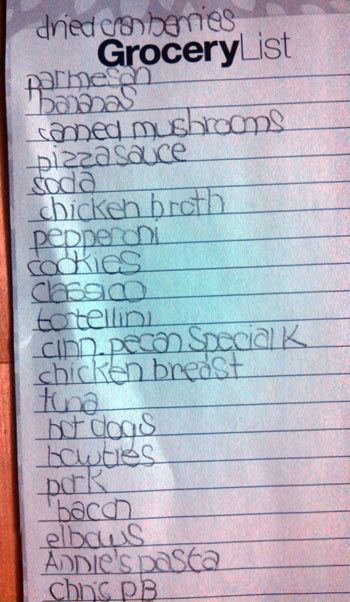 dried cranberries
GroceryList
parmesan
bananas
canned mushrooms
pizza sauce
soda
chicken broth
pepperoni
cookies
classico
tortellini
cinn. pecan Special K
chicken breast
tuna
hot dogs
bowties
pork
bacon
elbows
Annie's pasta
chris PB